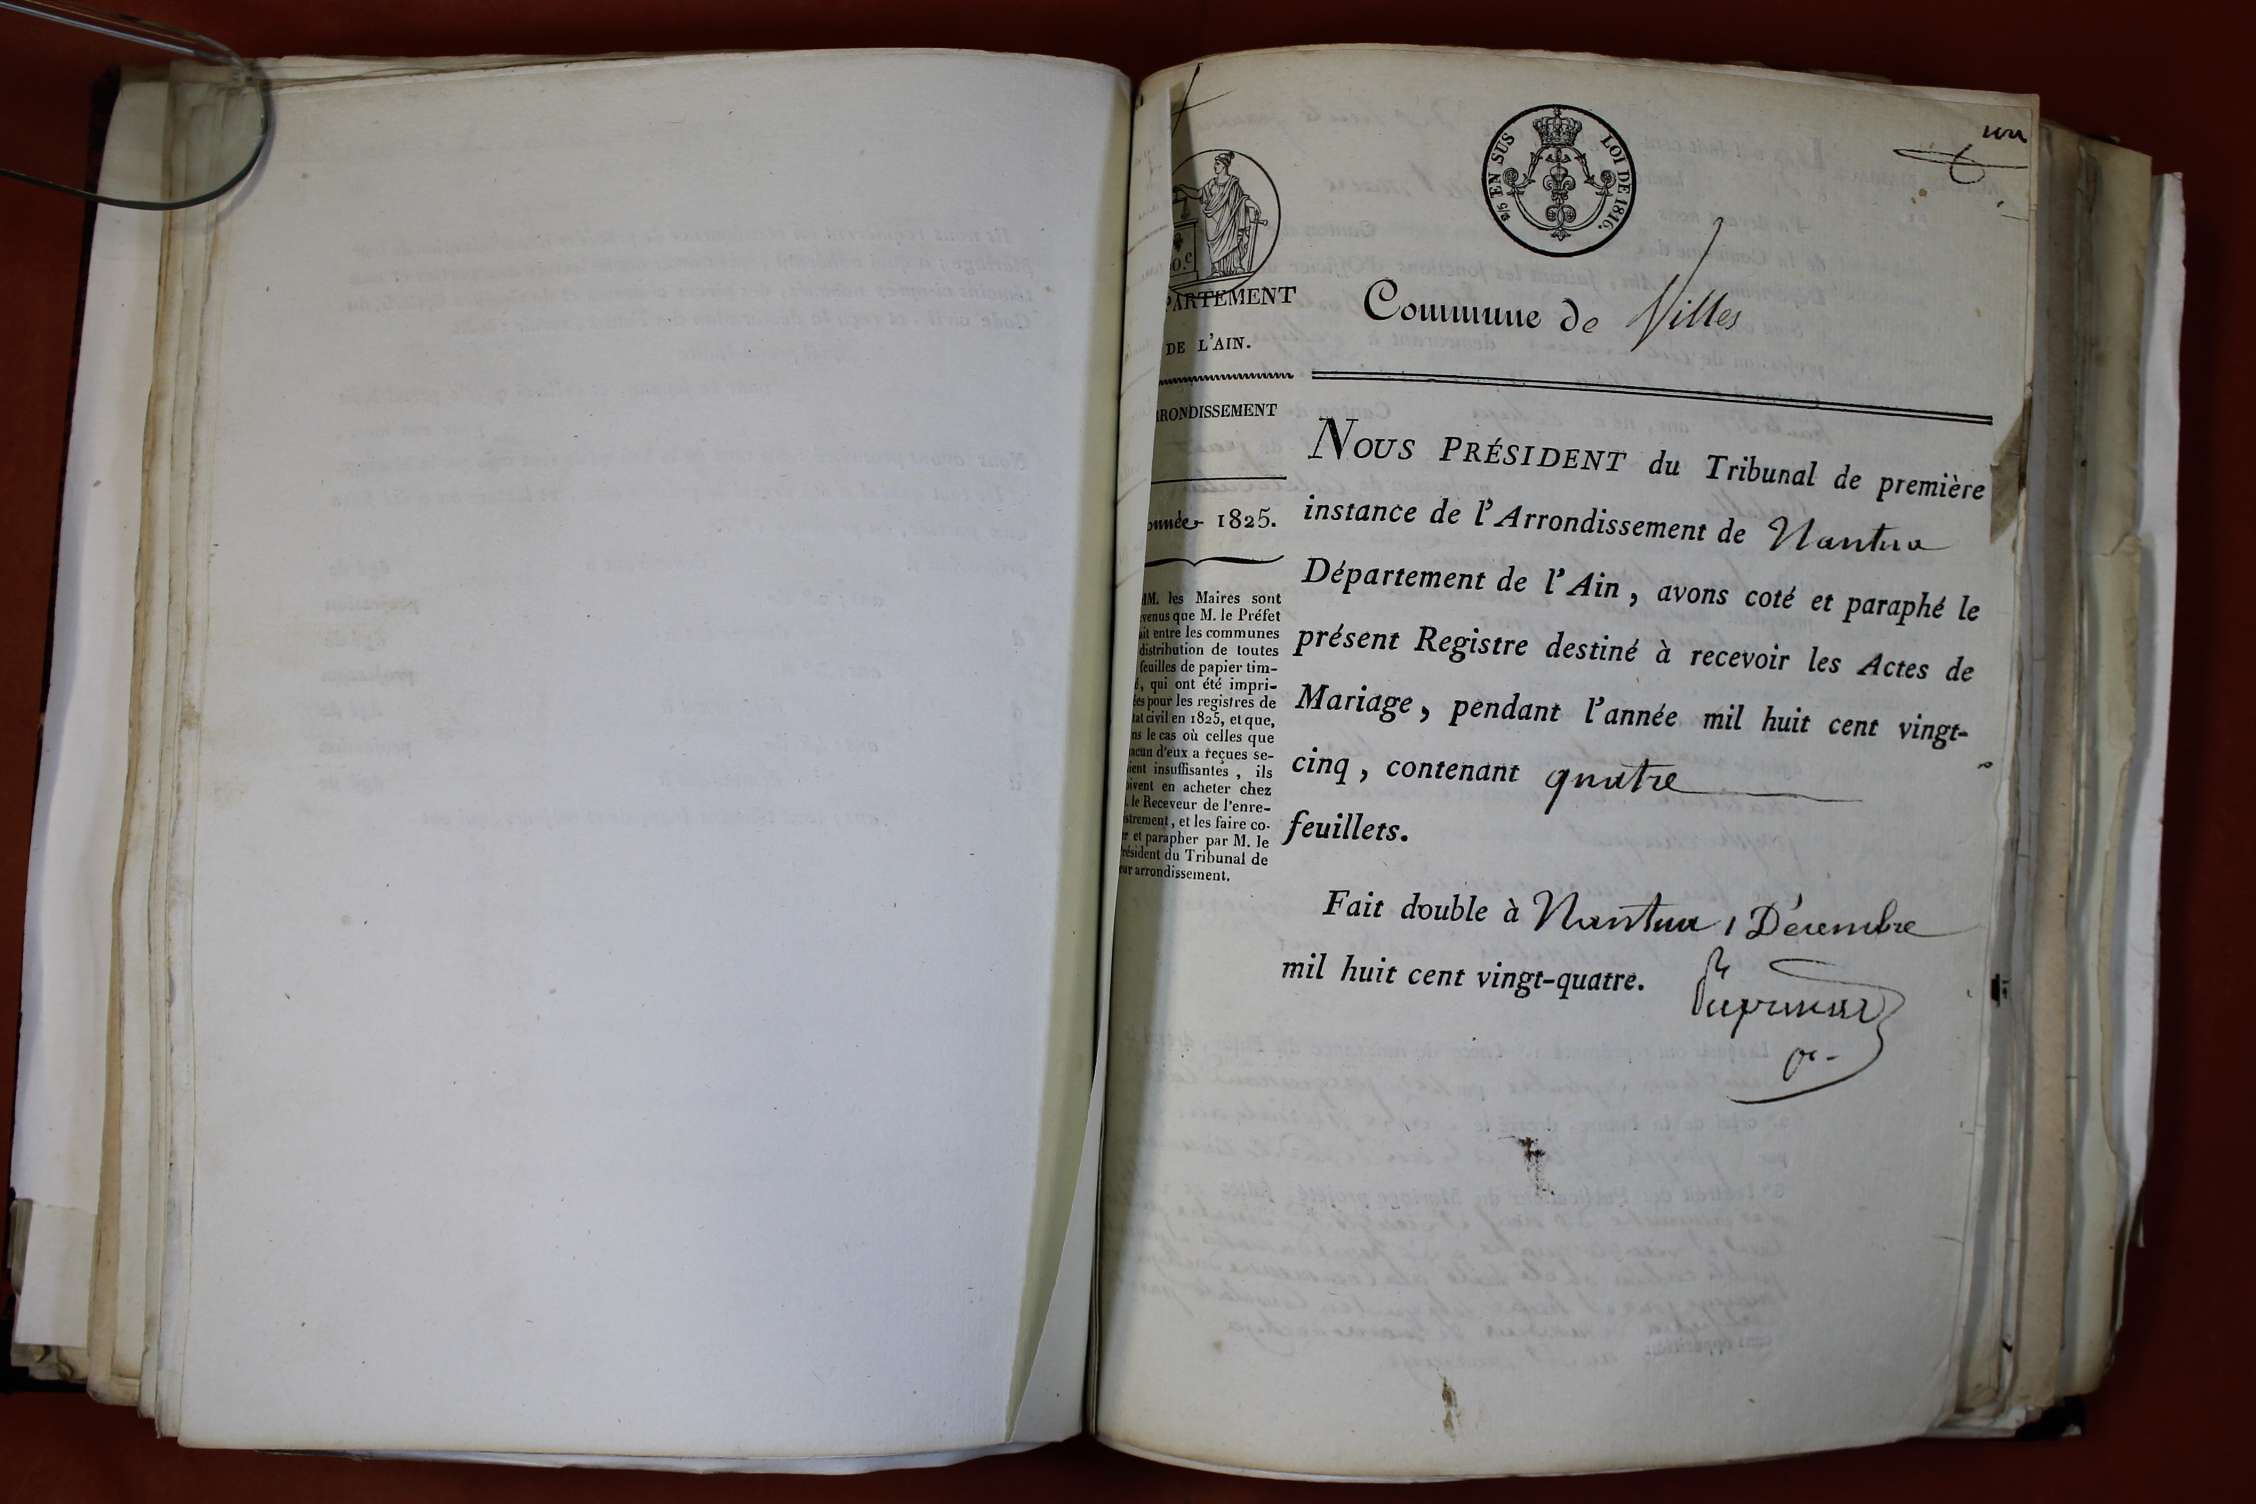 un
2/5 EN SUS LOI DE 1816.
Commune de Villes
PARTEMENT
DE L'AIN.
RRONDISSEMENT
1825.
MM. les Maires sont
venus que M. le Préfet
ait entre les communes
distribution de toutes
feuilles de papier tim-
é, qui ont été impri-
ées pour les registres de
tat civil en 1825, et que,
ns le cas où celles que
acun d'eux a reçues se-
ient insuffisantes, ils
oivent en acheter chez
. le Receveur de l'enre-
strement, et les faire co-
er et parapher par M. le
résident du Tribunal de
eur arrondissement.
NOUS PRÉSIDENT du Tribunal de première
instance de l'Arrondissement de Nantua
Département de l'Ain, avons coté et paraphé le
présent Registre destiné à recevoir les Actes de
Mariage, pendant l'année mil huit cent vingt-
cinq, contenant quatre
feuillets.
Fait double à Nantua 1 Décembre
mil huit cent vingt-quatre.